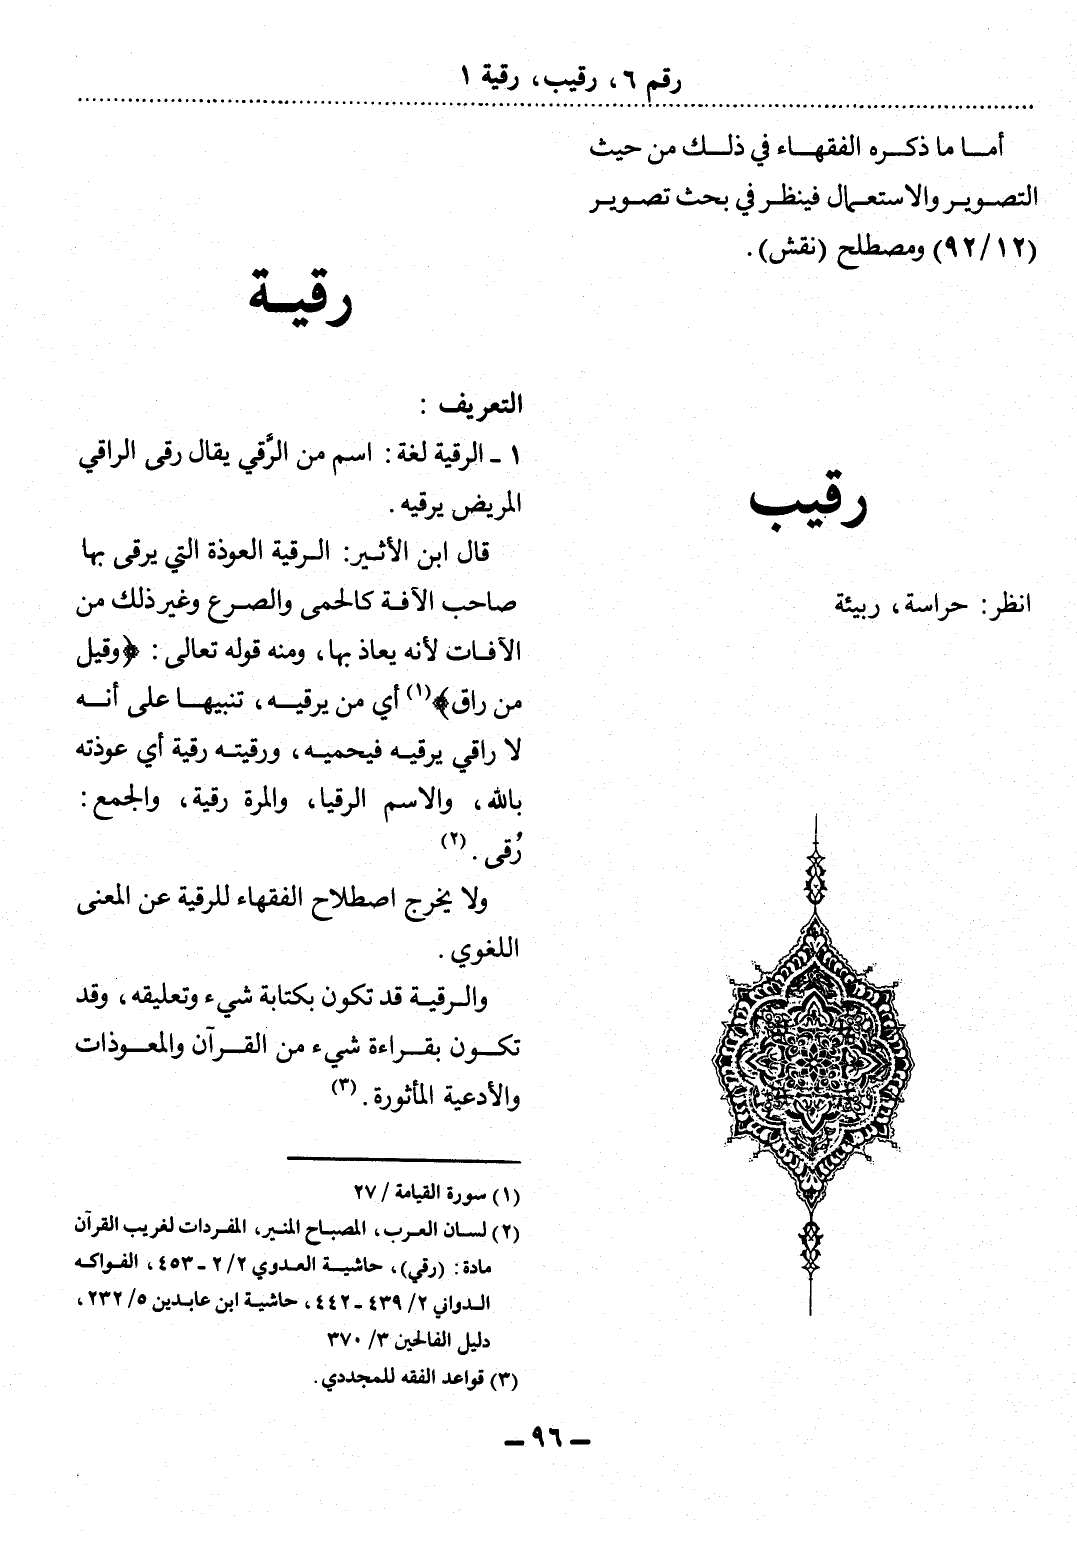 رقم ٦، رقيب، رقية ١
أما ما ذكره الفقهاء في ذلك من حيث
التصوير والاستعمال فينظر في بحث تصوير
(٩٢/١٢) ومصطلح (نقش).
رقيب
انظر: حراسة، ربيئة
رقية
التعريف :
١ - الرقية لغة: اسم من الرَّقي يقال رقى الراقي
المريض يرقيه.
قال ابن الأثير: الرقية العوذة التي يرقى بها
صاحب الآفة كالحمى والصرع وغير ذلك من
الآفات لأنه يعاذ بها، ومنه قوله تعالى: ﴿وقيل
من راق﴾(١) أي من يرقيه، تنبيها على أنه
لا راقي يرقيه فيحميه، ورقيته رقية أي عوذته
بالله، والاسم الرقيا، والمرة رقية، والجمع:
رُقى. (٢)
ولا يخرج اصطلاح الفقهاء للرقية عن المعنى
اللغوي.
والرقية قد تكون بكتابة شيء وتعليقه، وقد
تكون بقراءة شيء من القرآن والمعوذات
والأدعية المأثورة. (٣)
(١) سورة القيامة / ٢٧
(٢) لسان العرب، المصباح المنير، المفردات لغريب القرآن
مادة: (رقي)، حاشية العدوي ٢/ ٢ - ٤٥٣، الفواكه
الدواني ٢/ ٤٣٩ - ٤٤٢، حاشية ابن عابدين ٥/ ٢٣٢،
دليل الفالحين ٣/ ٣٧٠
(٣) قواعد الفقه للمجددي.
- ٩٦ -